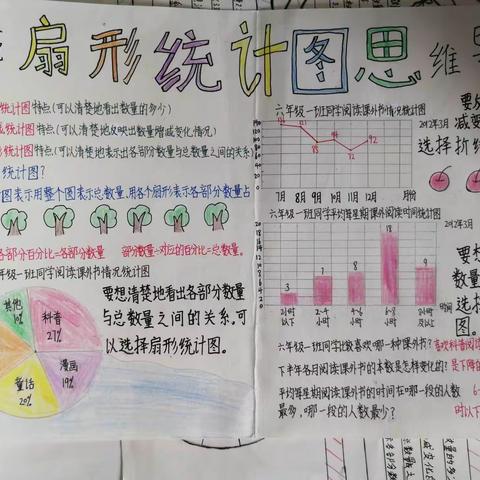 扇形统计图思维
统计图特点(可以清楚地看出数量的多少)
统计图特点(可以清楚地反映出数量增减变化情况)
统计图特点(可以清楚地表示出各部分数量与总数量之间的关系)
统计图?
图表示用整个图表示总数量,用各个扇形表示各部分数量占
各部分百分比=各部分数量 部分数量÷对应的百分比=总数量。
年级一班同学阅读课外书情况统计图
其他
科普
27%
漫画
19%
童话
20%
要想清楚地看出各部分数量
与总数量之间的关系,可
以选择扇形统计图。
六年级一班同学阅读课外书情况统计图
2012年3月
92
7月 8月 9月 10月 11月 12月 月份
减变
选择折线
六年级一班同学平均每星期课外阅读时间统计图
2012年3月
20
18
16
14
12
10
8
6
4
2
0
3
7
8
18
9
2小时以下
2-4小时
4-6小时
6-8小时
时间
要想
数量
选择
图。
六年级一班同学比较喜欢哪一种课外书?喜欢科普阅读
下半年各月阅读课外书的本数是怎样变化的?是下降的
平均每星期阅读课外书的时间在哪一段的人数
最多,哪一段的人数最少?